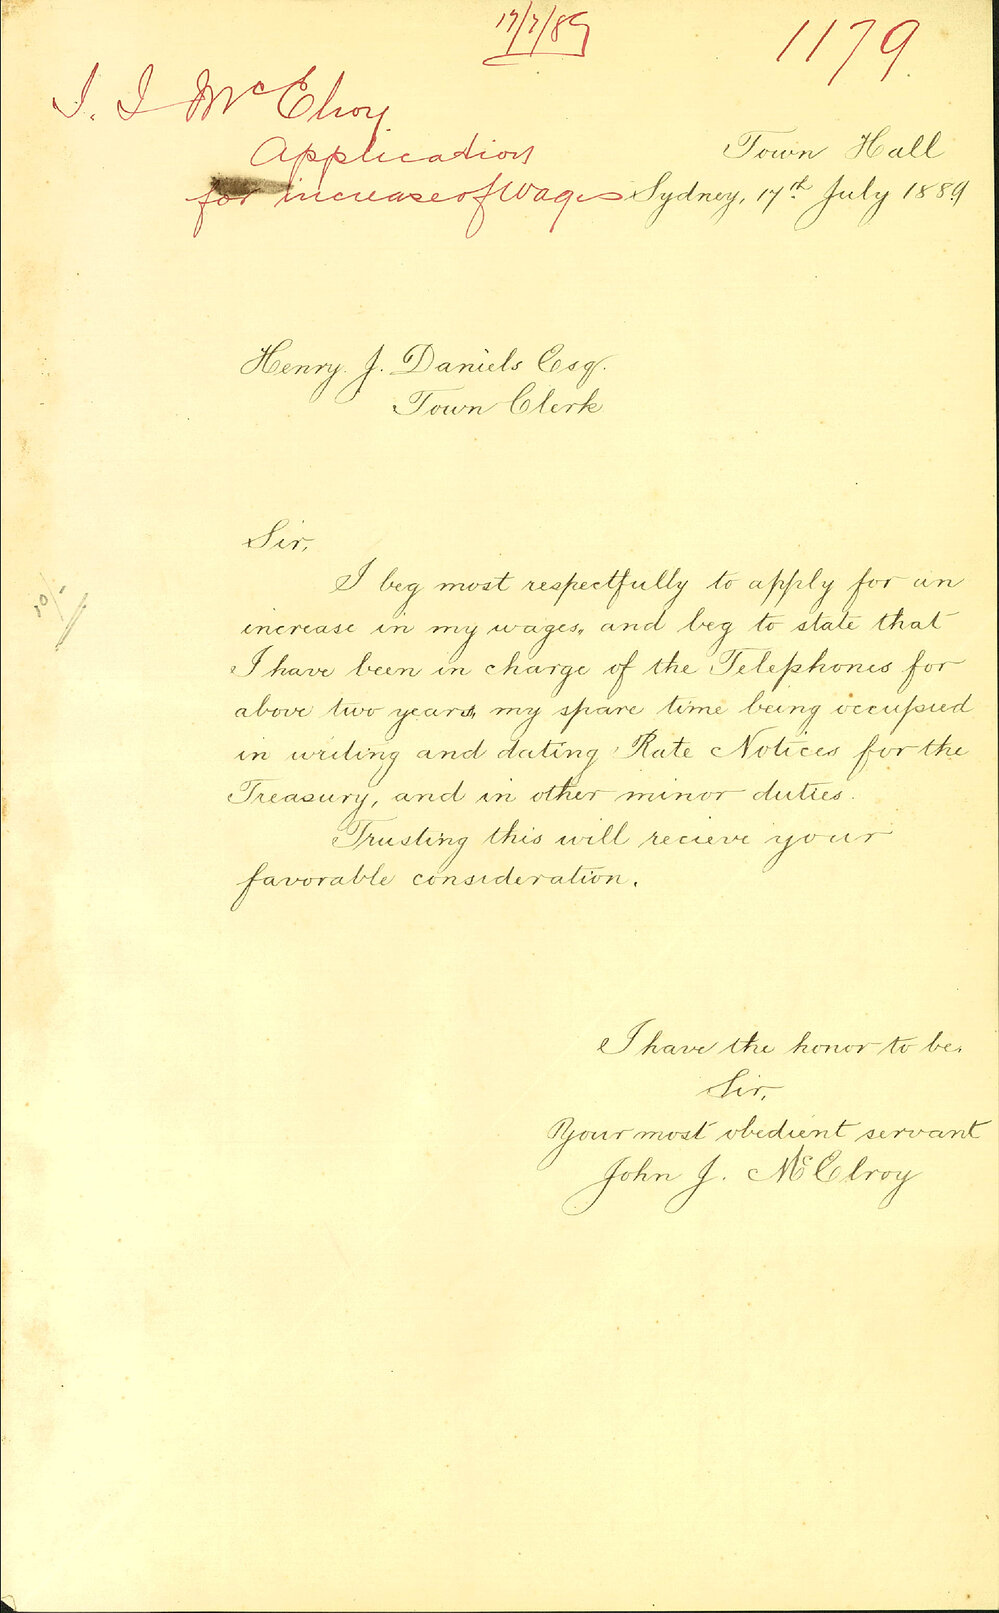 17/7/89
1179
J. J McElroy
Application
for increase of Wages
Town Hall
Sydney, 17th July 1889
Henry. J. Daniels Esq.
Town Clerk
Sir,
I beg most respectfully to apply for an
increase in my wages, and beg to state that
I have been in charge of the Telephones for
above two years, my spare time being occupied
in writing and dating Rate Notices for the
Treasury, and in other minor duties.
Trusting this will recieve your
favorable consideration.
10/-
I have the honor to be.
Sir,
Your most obedient servant
John J. McElroy